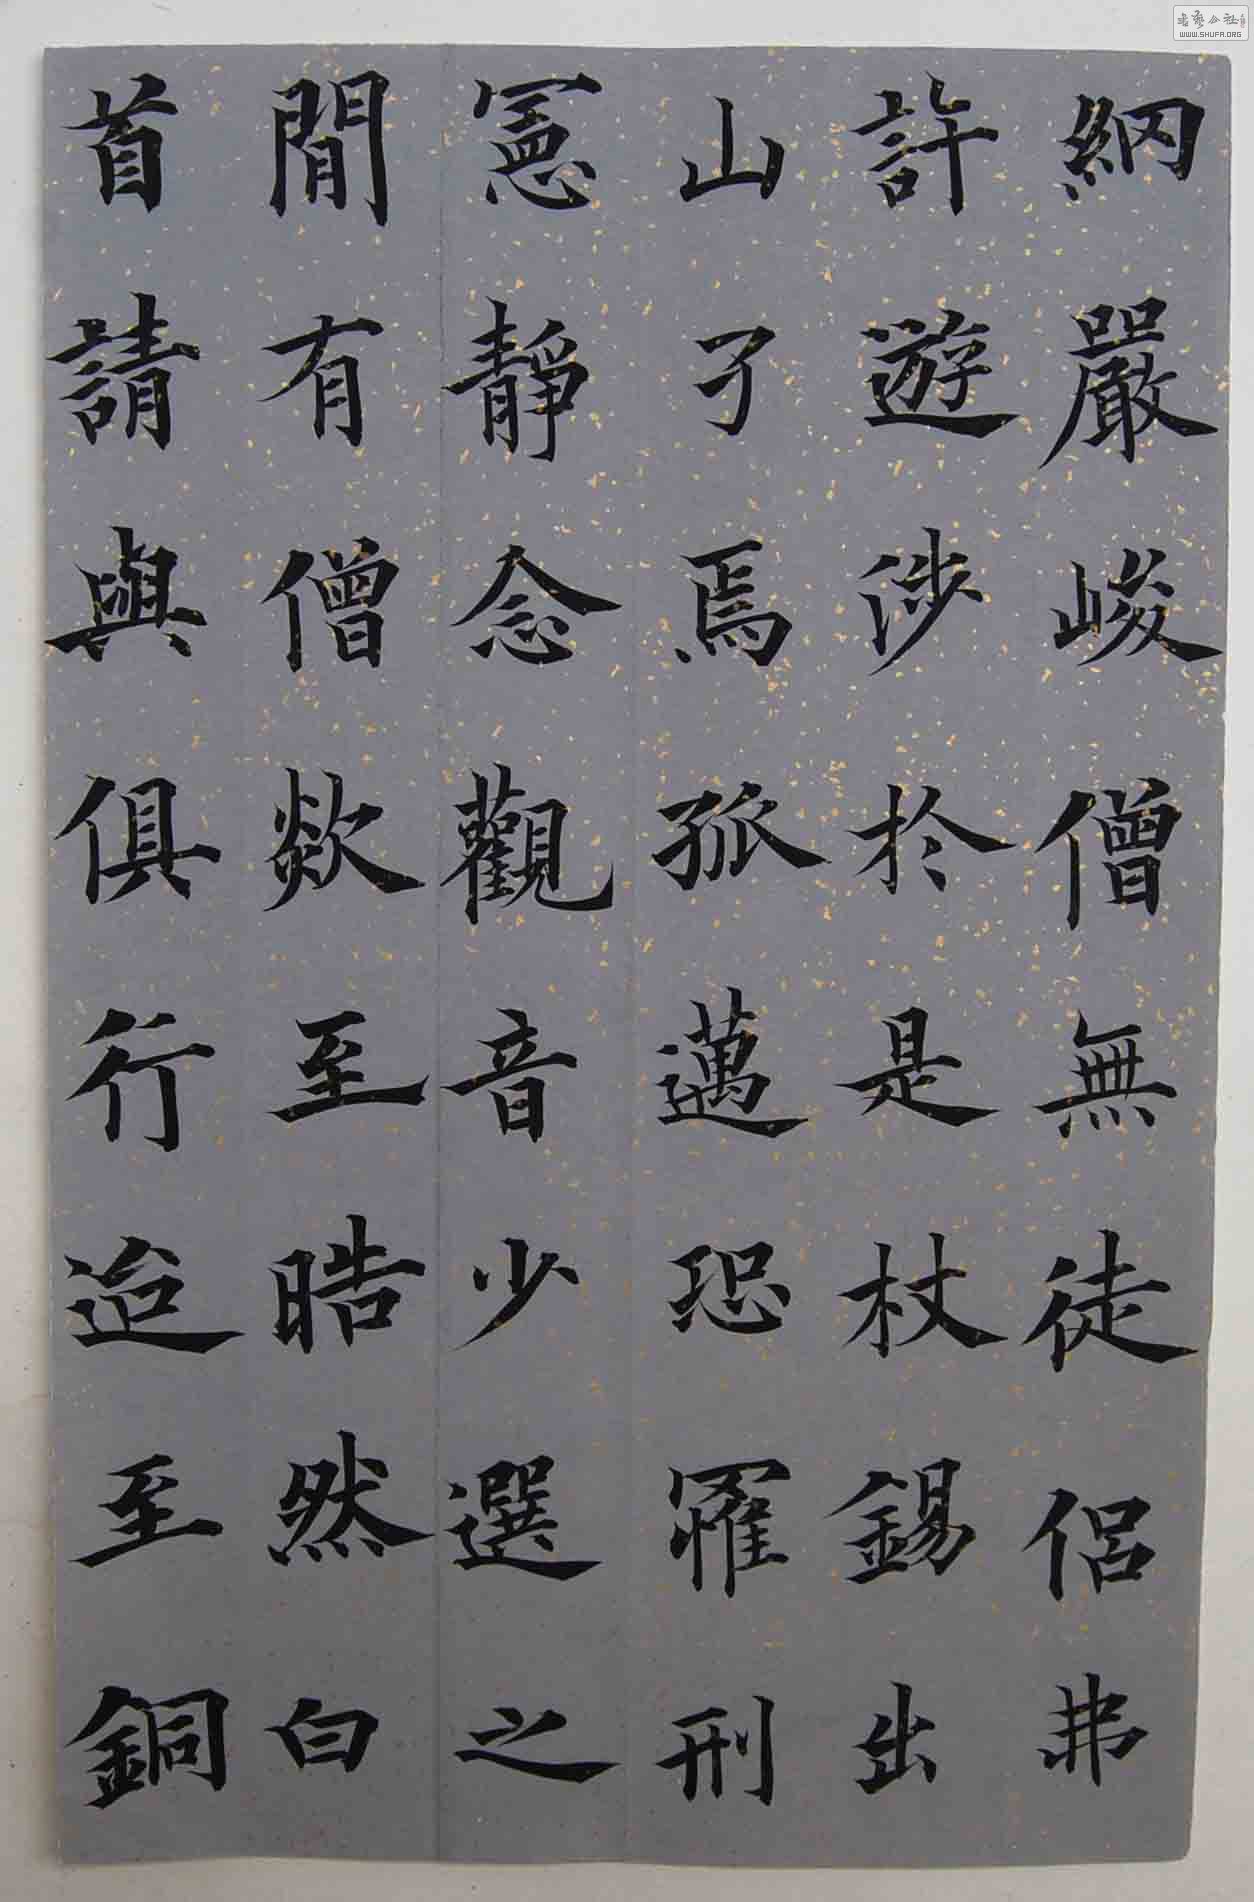 網嚴峻僧無徒侶弗
許遊涉於是杖錫出
山了焉孤邁恐罹刑
憲靜念觀音少選之
間有僧欻至皓然白
首請與俱行迨至銅
書藝公社
WWW.SHUFA.ORG